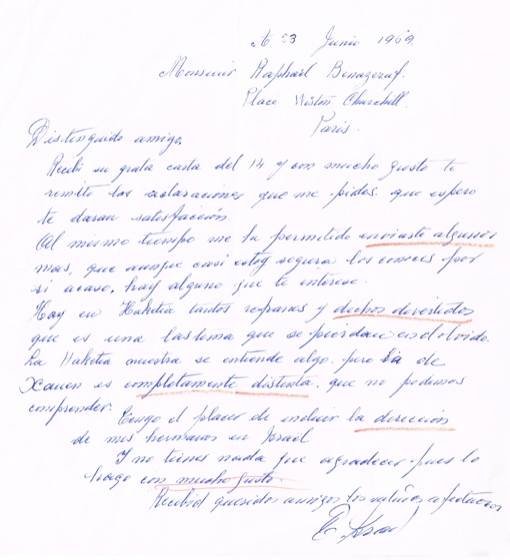 23 Junio 1969.
Monsieur Raphaël Benazeraf.
Place Wiston Churchill.
Paris.
Distinguido amigo,
Recibi su grata carta del 14 y con mucho gusto te
remito las aclaraciones que me pides, que espero
te daran satisfacción.
Al mismo tiempo me he permitido enviarte algunos
mas, que aunque casi estoy segura los conoces por
si acaso, hay alguno que te interese.
Hay en Haketia tantos refranes y dichos divertidos
que es una lastima que se pierdan en el olvido.
La Haketia nuestra se entiende algo, pero la de
Xauen es completamente distinta, que no podemos
comprender.
Tengo el placer de incluir la dirección
de mis hermanos en Israel
Y no tienes nada que agradecer pues lo
hago con mucho gusto.
Recibid queridos amigos los saludos afectuosos